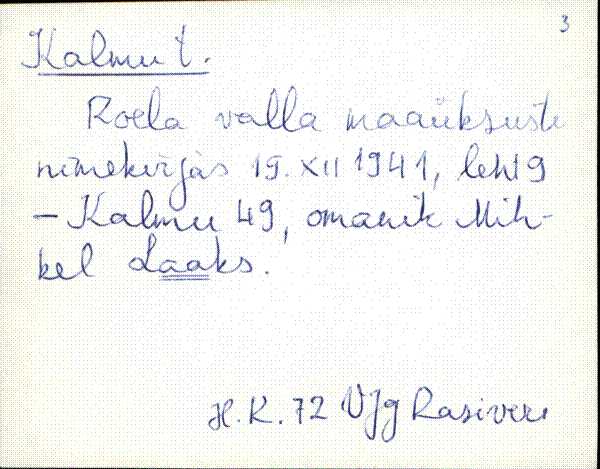 3
Kalmu t.
Roela valla maaüksuste
nimekirjas 19. XII 1941, leht 9
– Kalmu 49, omanik Mih-
kel Laaks.
H. K. 72 VJg Rasivere